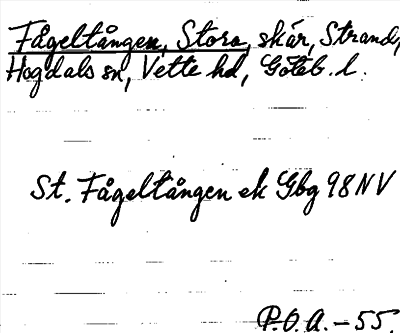 Fågeltången, Stora, skär, Strand,
Hogdals sn, Vette hd, Göteb. l.
St. Fågeltången ek Gbg 98 NV
P.O.A. – 55.